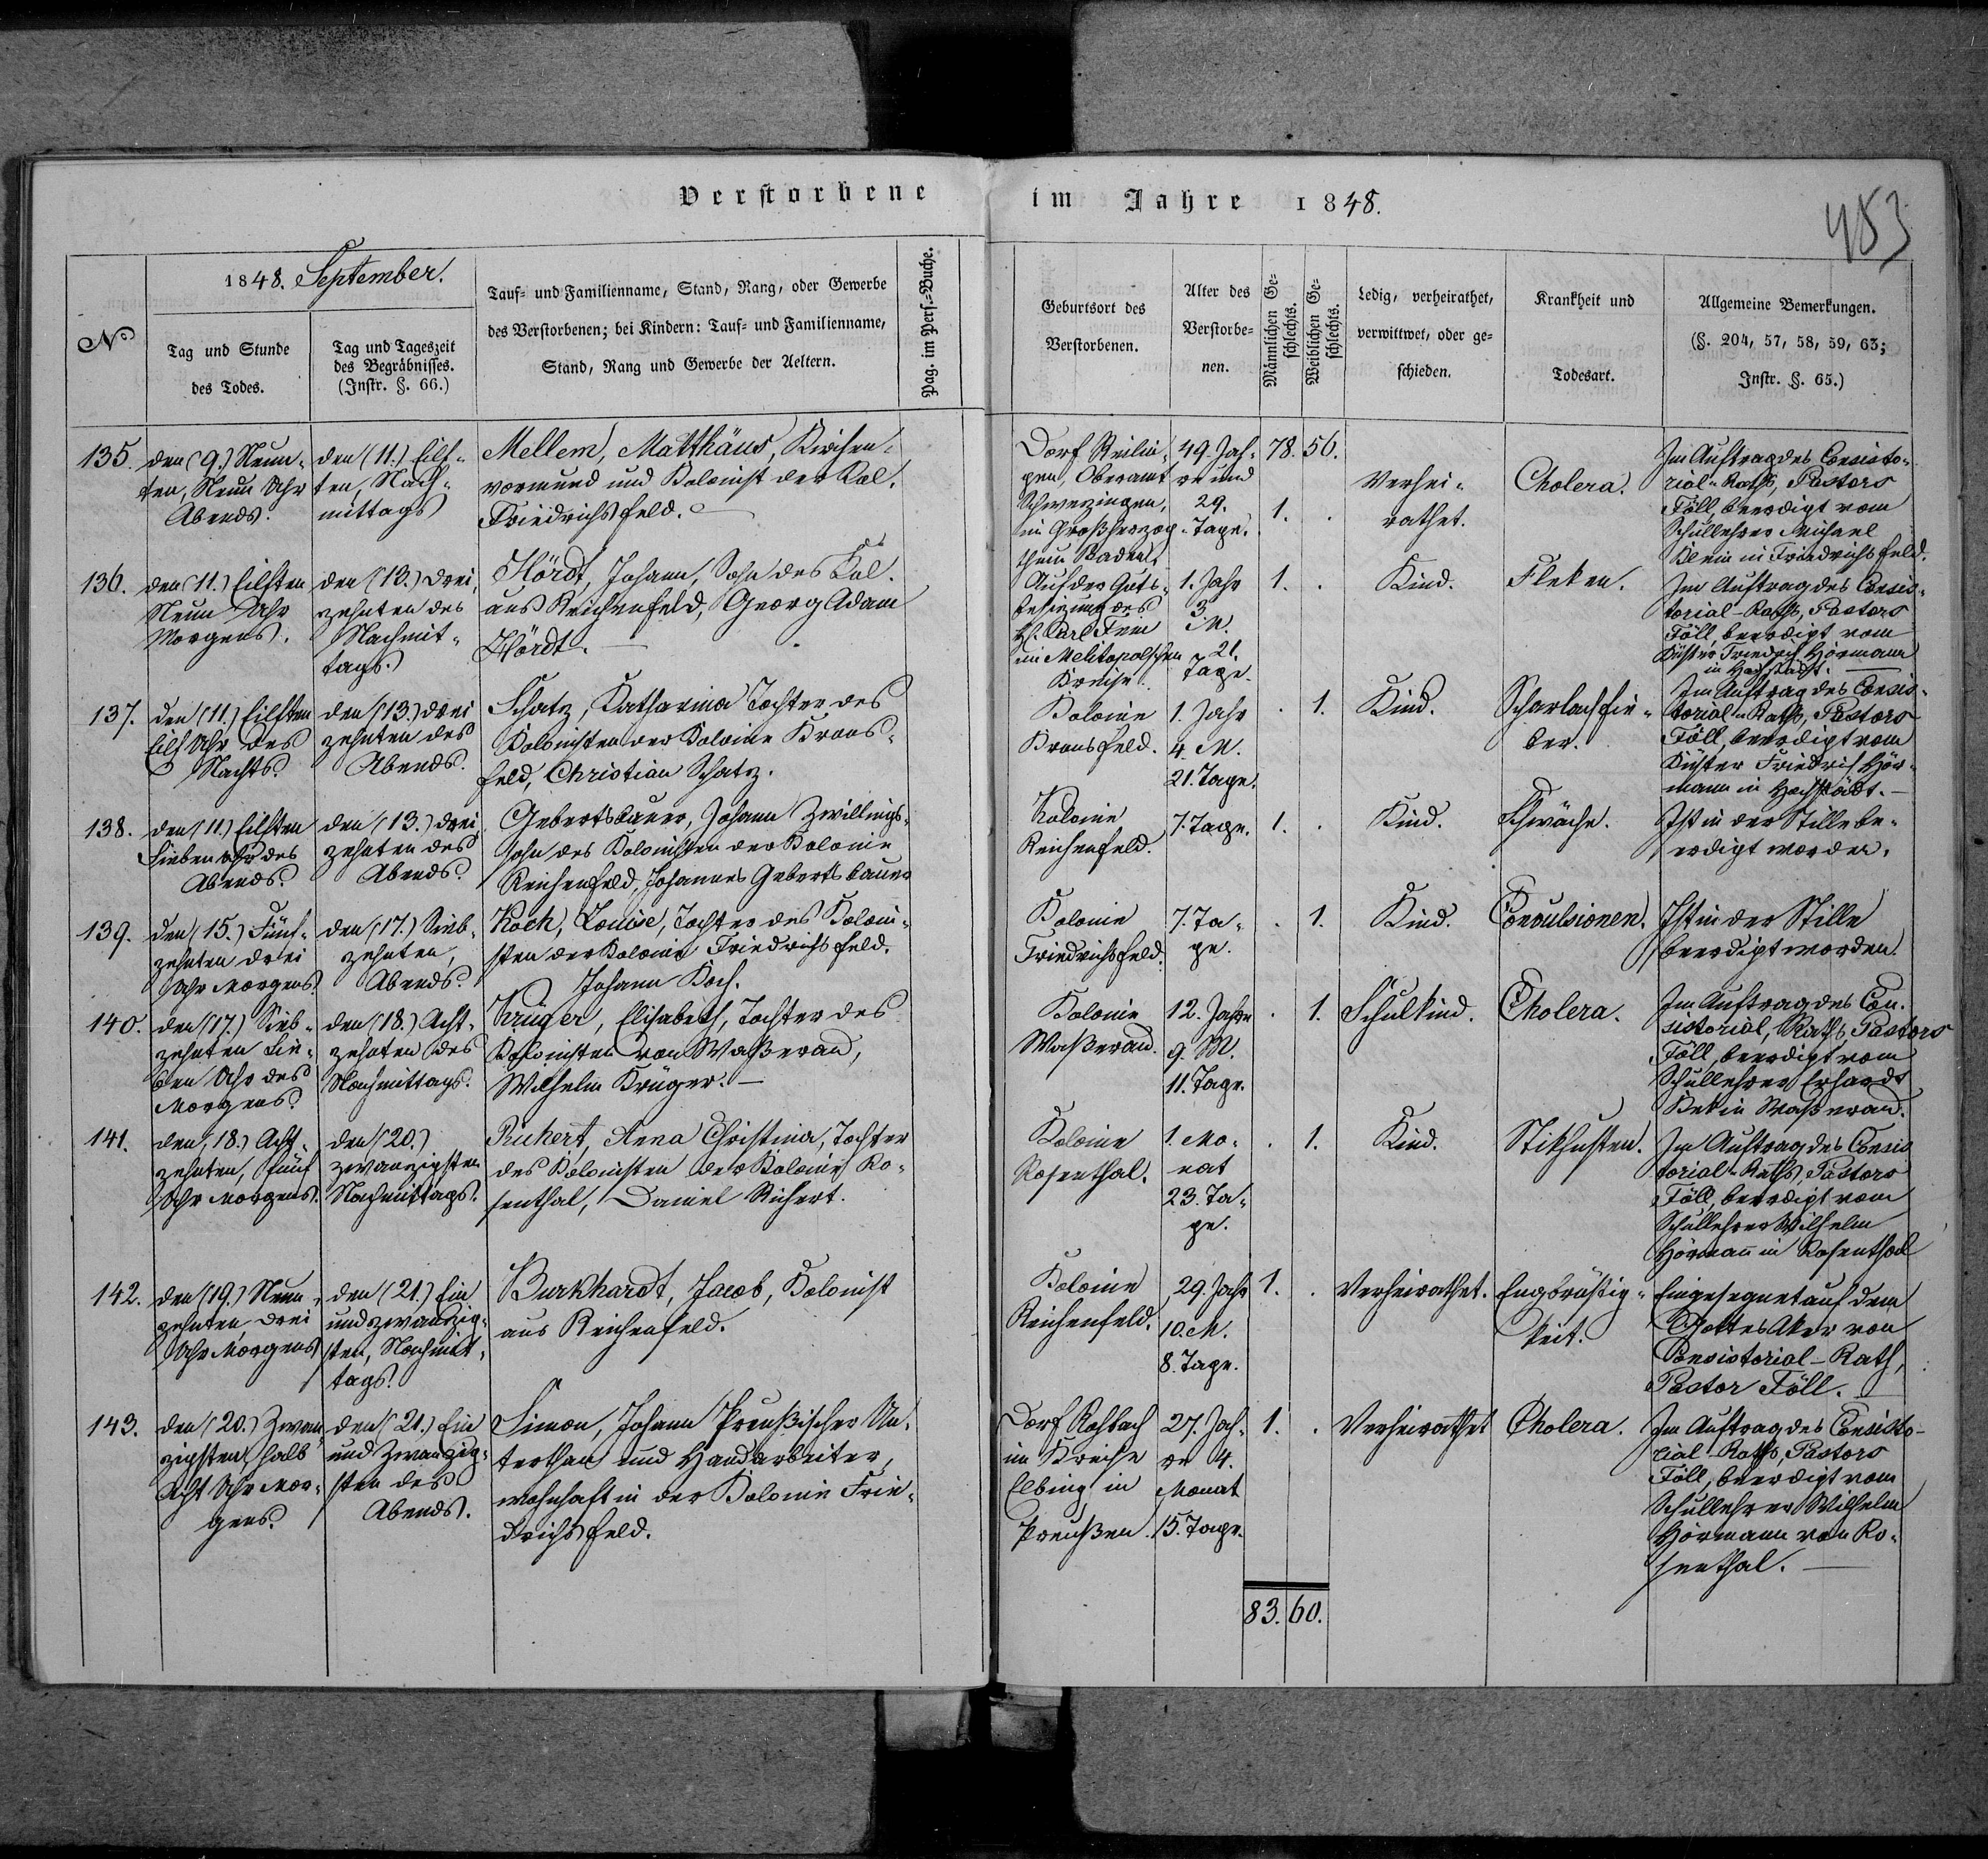 Verstorbene im Jahre 1848.
483
No
1848. September.
Tag und Stunde
des Todes.
Tag und Tageszeit
des Begräbnisses.
(Instr. §. 66.)
Tauf- und Familienname, Stand, Rang, oder Gewerbe
des Verstorbenen; bei Kindern: Tauf- und Familienname,
Stand, Rang und Gewerbe der Aeltern.
Pag. im Pers.-Buche.
Geburtsort des
Verstorbenen.
Alter des
Verstorbe-
nen.
Männlichen Ge-
schlechts.
Weiblichen Ge-
schlechts.
Ledig, verheirathet,
verwittwet, oder ge-
schieden.
Krankheit und
Todesart.
Allgemeine Bemerkungen.
(§. 204, 57, 58, 59, 63;
Instr. §. 65.)
135.
den (9.) Neun-
ten, Neun Uhr
Abends.
den (11.) Eilf-
ten, Nach-
mittags
Mellem, Matthäus, Kirchen-
vormund und Kolonist der Kol.
Friedrichsfeld.
Dorf Reilin-
gen, Oberamt
Schwezingen,
im Großherzog-
thum Baden.
49. Jah-
re und
29.
Tage.
78. 56.
1. .
Verhei-
rathet.
Cholera.
Im Auftrag des Consisto-
rial-Raths, Pastors
Föll, beerdigt vom
Schullehrer Michael
Klein in Friedrichsfeld.
136.
den (11.) Eilften
Neun Uhr
Morgens.
den (13.) drei-
zehnten des
Nachmit-
tags.
Hördt, Johann, Sohn des Kol.
aus Reichenfeld, Georg Adam
Hördt.
Auf der Guts-
besizung des
H. Carl Fein
im Melitopolschen
Kreise.
1. Jahr
3.
M.
21.
Tage.
1. .
Kind.
Fleken.
Im Auftrag des Consis-
torial-Raths, Pastors
Föll, beerdigt vom
Küster Friedrich Hörmann
in Hochstädt.
137.
den (11.) Eilften
Eilf Uhr des
Nachts.
den (13.) drei
zehnten des
Abends.
Schatz, Katharina Tochter des
Kolonisten der Kolonie Krons-
feld, Christian Schatz.
Kolonie
Kronsfeld.
1. Jahr
4. M.
21. Tage.
. 1.
Kind.
Scharlachfie-
ber.
Im Auftrag des Consis-
torial-Raths, Pastors
Föll, beerdigt vom
Küster Friedrich Hör-
mann in Hochstädt.
138.
den (11.) Eilften
Sieben Uhr des
Abends.
den (13.) drei
zehnten des
Abends.
Gebertsbauer, Johann Zwillings-
sohn des Kolonisten der Kolonie
Reichenfeld, Johannes Gebertsbauer
Kolonie
Reichenfeld.
7. Tage.
1. .
Kind.
Schwäche.
Ist in der Stille be-
erdigt worden.
139.
den (15.) Fünf-
zehnten drei
Uhr Morgens.
den (17.) Sieb-
zehnten,
Abends.
Koch, Louise, Tochter des Koloni-
sten der Kolonie Friedrichsfeld.
Johann Koch.
Kolonie
Friedrichsfeld.
7. Ta-
ge.
. 1.
Kind.
Convulsionen.
Ist in der Stille
beerdigt worden.
140.
den (17.) Sieb-
zehnten Sie-
ben Uhr des
Morgens.
den (18.) Acht-
zehnten des
Nachmittags.
Krüger, Elisabeth, Tochter des
Kolonisten von Waßerau,
Wilhelm Krüger.
Kolonie
Waßerau.
12. Jahre
9. M.
11. Tage.
. 1.
Schulkind.
Cholera.
Im Auftrag des Con-
sistorial, Raths, Pastors
Föll, beerdigt vom
Schullehrer Erhardt
Bek in Waßerau.
141.
den (18.) Acht-
zehnten, fünf
Uhr Morgens.
den (20.)
zwanzigsten
Nachmittags.
Richert, Anna Christina, Tochter
des Kolonisten der Kolonie Ro-
senthal, Daniel Richert.
Kolonie
Rosenthal.
1. Mo-
nat
23. Ta-
ge.
. 1.
Kind.
Stikhusten.
Im Auftrag des Consis
torial-Raths, Pastors
Föll, beerdigt vom
Schullehrer Wilhelm
Hörmann in Rosenthal
142.
den (19.) Neun-
zehnten, drei
Uhr Morgens
den (21.) Ein
und zwanzig-
sten, Nachmit-
tags.
Burkhardt, Jacob, Kolonist
aus Reichenfeld.
Kolonie
Reichenfeld.
29. Jahr
10. M.
8. Tage.
1. .
Verheirathet.
Engbrüstig-
keit.
Eingesegnet auf dem
GottesAker von
Consistorial-Rath,
Pastor Föll.
143.
den (20.) Zwan
zigsten halb
Acht Uhr Mor-
gens.
den (21.) Ein
und Zwanzig-
sten des
Abends.
Simon, Johann Preußischer Un-
terthan und Handarbeiter,
wohnhaft in der Kolonie Frie-
drichsfeld.
Dorf Rohbach
im Kreise
Elbing in
Preußen.
27. Jah-
re 4.
Monat
15. Tage.
1. .
Verheirathet
Cholera.
Im Auftrag des Consisto-
rial-Raths, Pastors
Föll, beerdigt vom
Schullehrer Wilhelm
Hörmann von Ro-
senthal.
83. 60.